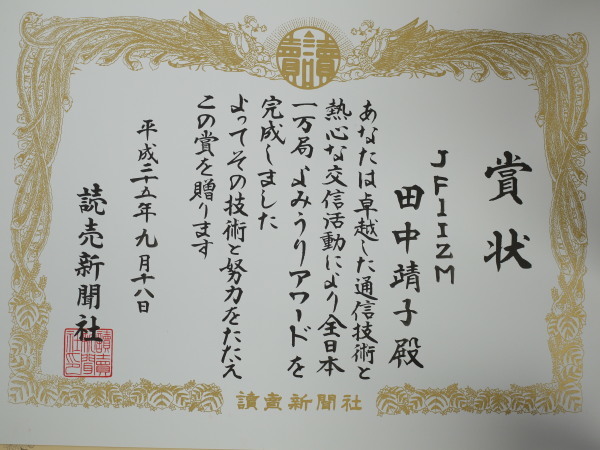 賞状
JF1IZM
田中靖子殿
あなたは卓越した通信技術と
熱心な交信活動により全日本
一万局よみうりアワードを
完成しました
よってその技術と努力をたたえ
この賞を贈ります
平成二十五年九月十八日
読売新聞社
讀賣新聞社